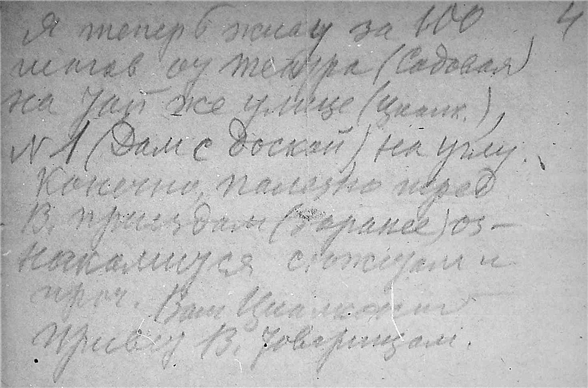 Я теперь живу за 100 4
шагов от театра (Садовая)
на той же улице (Циолк.),
№ 1 (Дом с доской) на углу.
Конечно, полезно перед
В. приездом (заранее) оз-
накомиться с сюжетом и
проч. Ваш Циолковский
Привет В. товарищам.